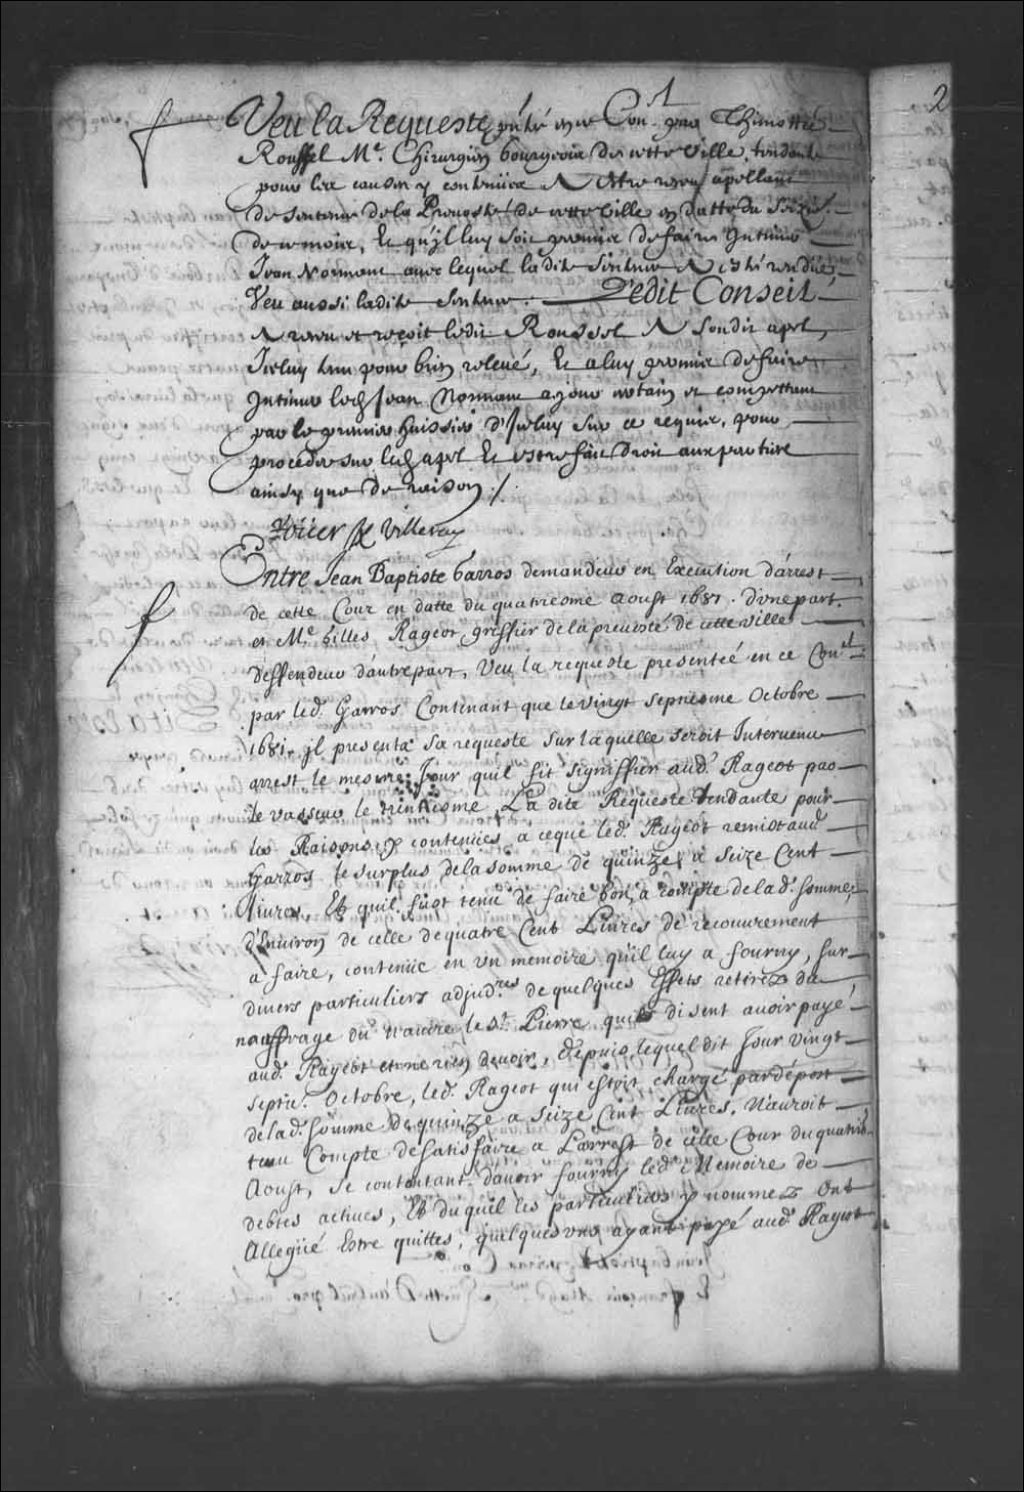 2
Veu la Requeste pnteé en ce Con.el par Thimottée
Roussel Me. Chirurgien bourgeois de cette ville, tendante
pour les causes y contenües A Estre receu apellant
de sentence de la Prevosté de cette ville en datte du seize
de ce mois, Et qu'jl luy soit permis de faire Intimer
Jean Normant avec lequel ladite sentence A esté rendüe
Veu aussi ladite sentence. Ledit Conseil
A receu et reçoit ledit Roussel A sondit apel,
Iceluy tenu pour bien relevé, Et a luy permis de faire
Intimer led. Jean Normant a jour certain et competant
par le premier huissier d'Iceluy sur ce requis, pour
proceder sur led. apel Et estre fait droit aux parties
ainsy que de raison ./.
Roüer de Villeray
Entre Jean Baptiste Garros demandeur en Execution d'arrest
de cette Cour en datte du quatriesme Aoust 1681. d'une part.
et Me. Gilles Rageot greffier de la prevosté de cette ville
deffendeur d'autre part, Veu la requeste presenteé en ce Con.el
par led. Garros Contenant que le vingt septiesme Octobre
1681. jl presenta sa requeste sur laquelle seroit Intervenu
arrest le mesme Jour quil fit signiffier aud. Rageot par
le vasseur le trentiesme, La dite Requeste tendante pour
les Raisons y contenües a ceque led. Rageot remist aud.
Garros le surplus de la somme de quinze a seize Cent
livres, Et quil fust tenu de faire bon, a compte de lad. somme,
d'Environ de celle de quatre Cent Livres de recouvrement
a faire, contenüe en un memoire quil luy a fourny, sur
divers particuliers adjud.res de quelques Effets retirez du
nauffrage du navire le St. Pierre quils disent avoir payé
aud. Rageot et ne rien devoir, depuis lequel dit Jour vingt
septie. Octobre, led. Rageot qui estoit chargé par dépost
de lad. somme de quinze a seize Cent Livres, N'auroit
tenu Compte de satisfaire a L'arrest de cette Cour du quatrie.
Aoust, se contentant d'avoir fourny led. Memoire de
debtes actives, Et duquel les particuliers y nommez Ont
Allegüé Estre quittes, quelques uns ayant payé aud. Rageot